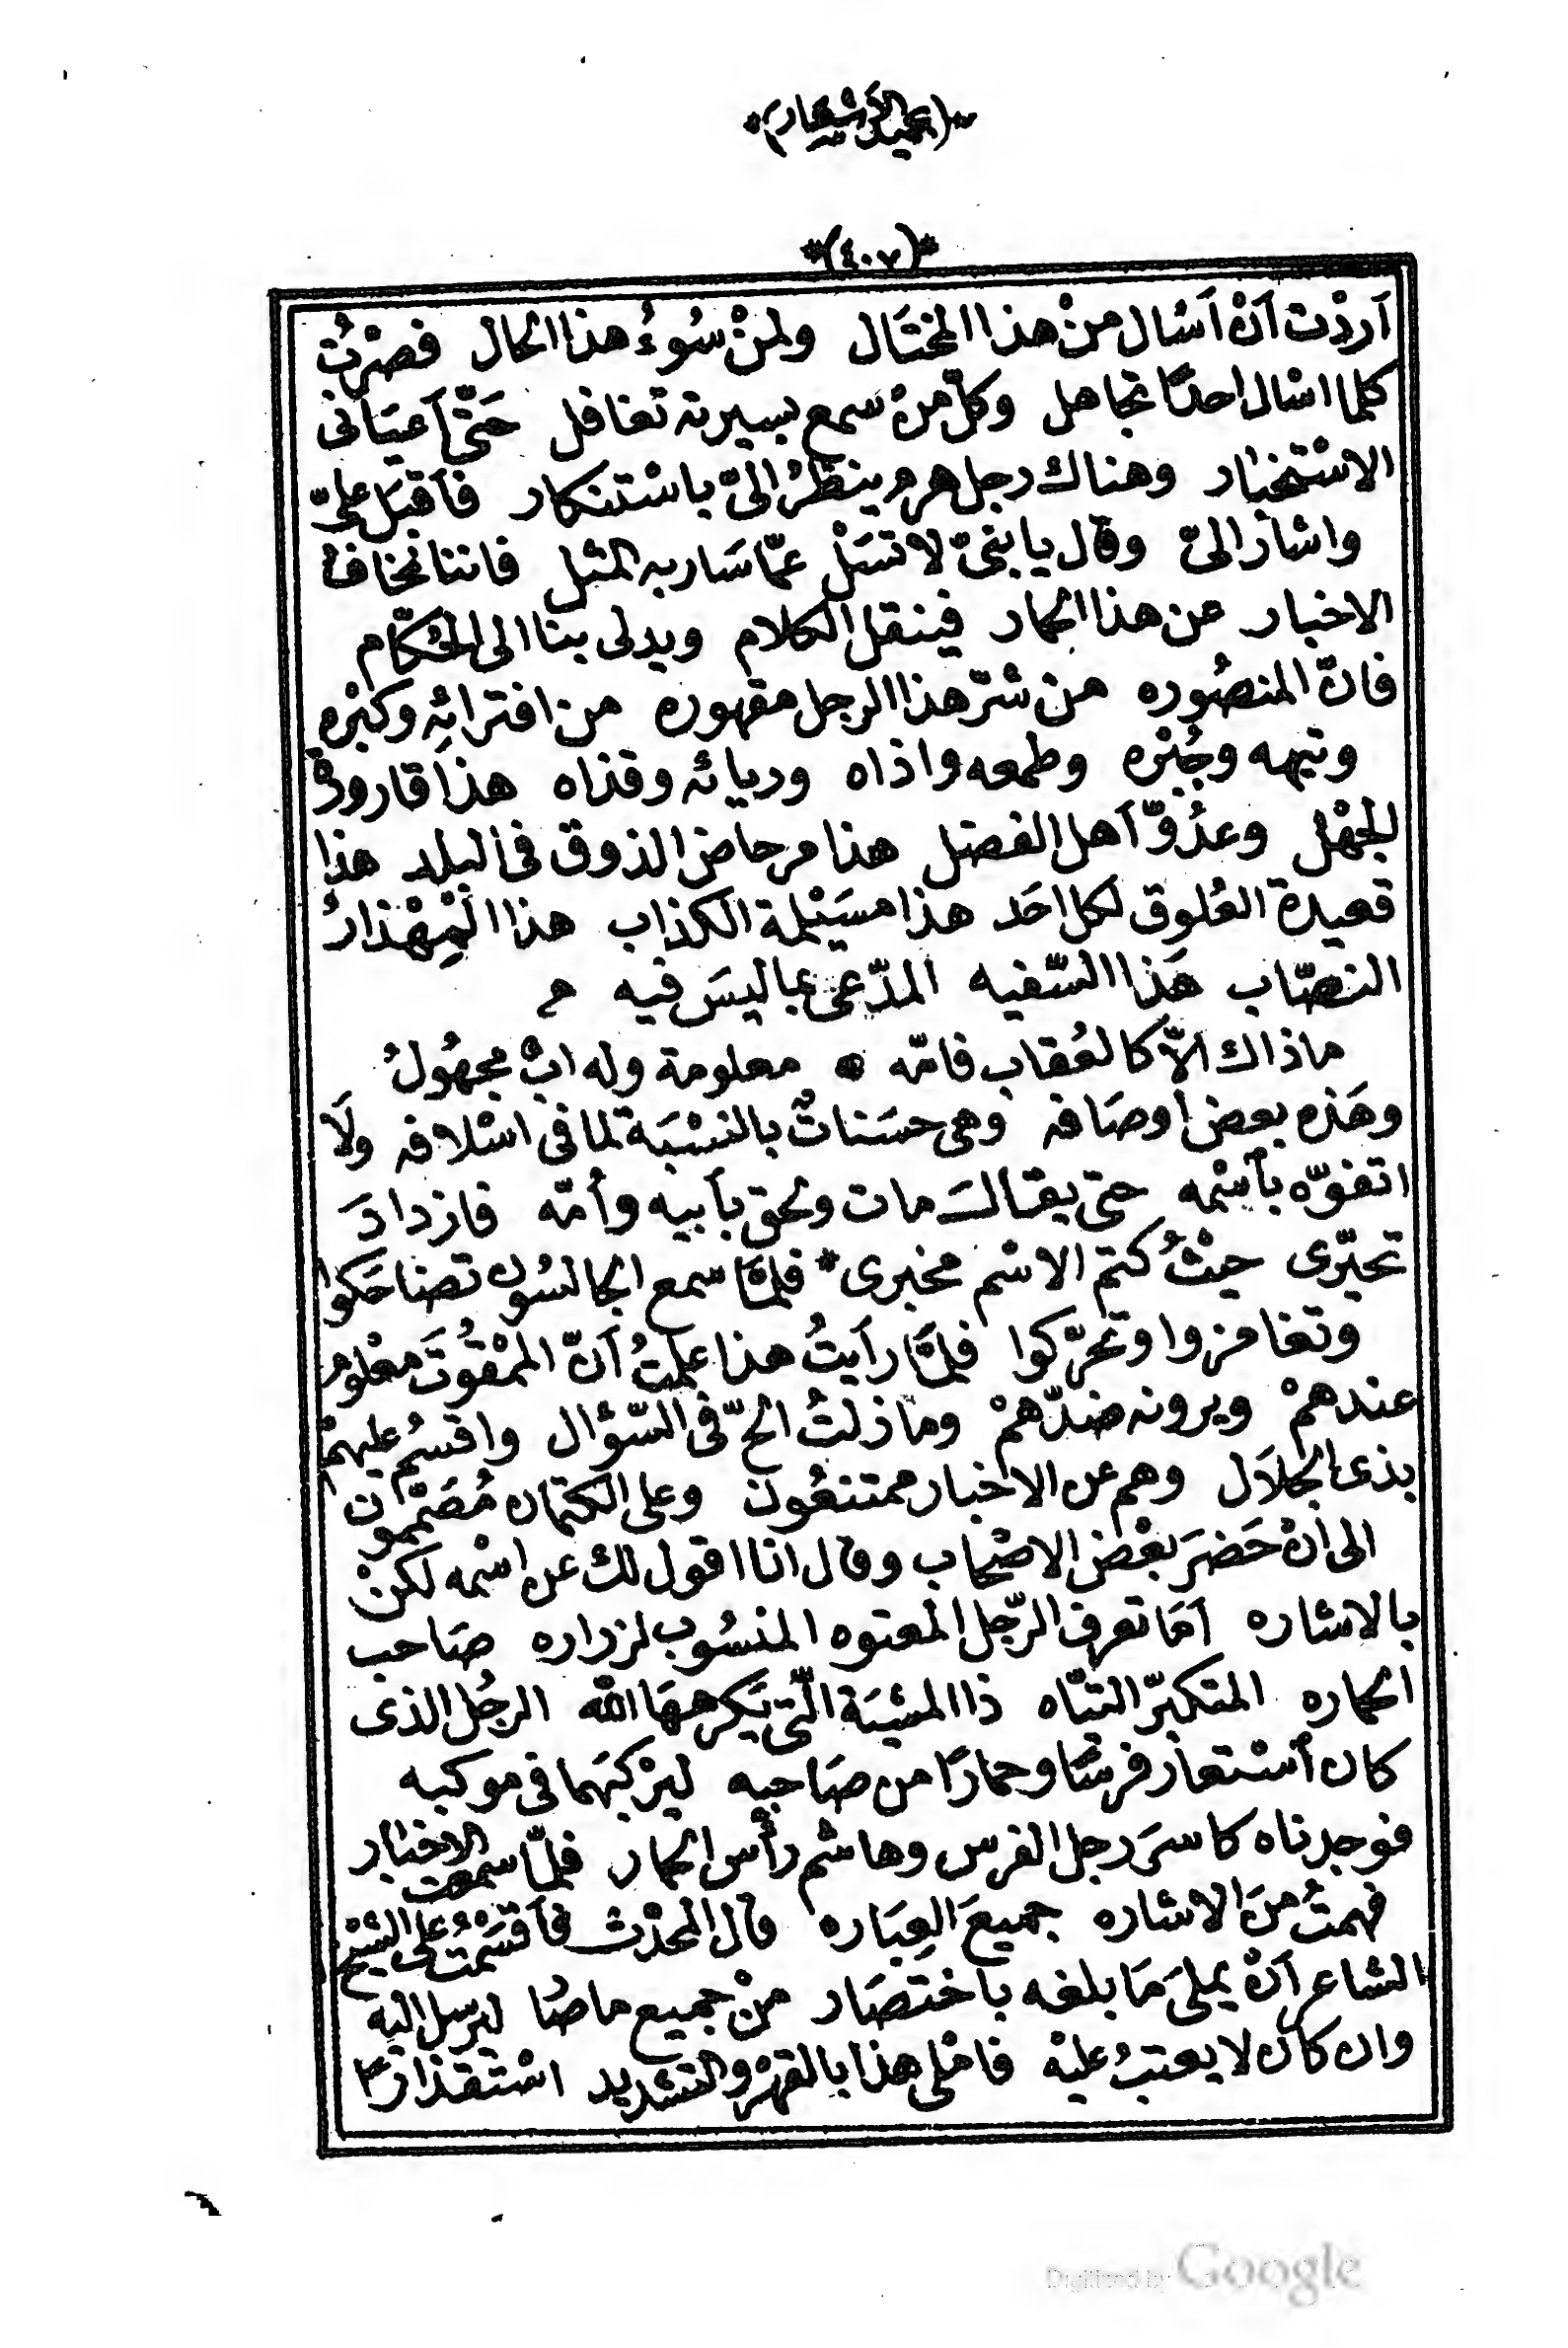 (٤٠٧)
اَردْت اَنْ اَسْال منْ هذا المختَال ولمنْ سُوءُ هذا الحال فصْرتُ
كلما اسْال احدًا تجاهل وكلّ منْ سمع بسيرته تغافل حَتّى اَعيَانى
الاسْتخبَار وهناك رجل هرم ينظرُ الىّ باسْتنكار فاَقبَل علىّ
واشار الىّ وقال يا بنىّ لا تسَلْ عمّا سَار به المثل فاننا نخافُ
الاخبار عن هذا الحمار فينقل الكلام ويدلى بنا الى الحُكّام
فانّ المنصُوره من شرّ هذا الرجل مقهوره من افترائِه وكبْره
وتيهه وجُبْره وطمعه واذاه وريائه وقذاه هذا قارورة
الجهْل وعدُوّ اَهل الفضل هذا مرحاض الذوق فى البلد هذا
قعيدة العُلوق لكل احَد هذا مسَيْلمة الكذاب هذا المِهْذارُ
النصّاب هَذا السّفيه المدّعى بما ليسَ فيه م
ما ذاك الاّ كالعُقاب فامّه • معلومة وله ابٌ مجهُولُ
وهَذه بعض اَوصَافه وهى حسَناتٌ بالنسْبَة لما فى اسْلافه ولَا
اتفوّه بآسْمه حتى يقال مات ولحق باَبيه واُمّه فازدادَ
تحيّرى حيْثُ كتم الاسْم مخبرى* فلمَّا سمع الجالسُون تضاحَكوا
وتغامزوا وتحرّكوا فلمَّا راَيتُ هذا علمتُ اَنّ الممْقُوتَ معْلوم
عندهمْ ويرونه ضدّهمْ وما زلتُ الحّ فى السّؤال واقسُم عليهمْ
بذى الجلَال وهم عن الاخبار ممتنعُون وعلى الكتمان مُصَمّمون
الى اَنْ حَضرَ بعْض الاصْحاب وقال انا اقول لك عن اسْمه لكنْ
بالاشاره اَمَا تعرف الرّجل المعتوه المنسُوب لزراره صَاحب
الحماره المتكبّر التيّاه ذا المشيَة الّتى يَكرههَا الله الرجُل الذى
كان اَسْتعار فرسًا وحمارًا من صَاحبه ليرْكبَهما فى موكبه
فوجدناه كاسرَ رجل الفرس وهاشم رأس الحمار فلمّا سمعت الاخبَار
فهمتُ منَ الاشاره جميعَ العِبَاره قال المحدّث فاَقسَمْتُ على الشيْخ
الشاعر اَنْ يملىَ مَا بلغه باختصَار منْ جميع ما صَار ليرْسل اليه
وان كان لا يعتبُ عليْه فاملى هذا بالقهْر والتشديد اسْتقذارًا
Digitized by Google